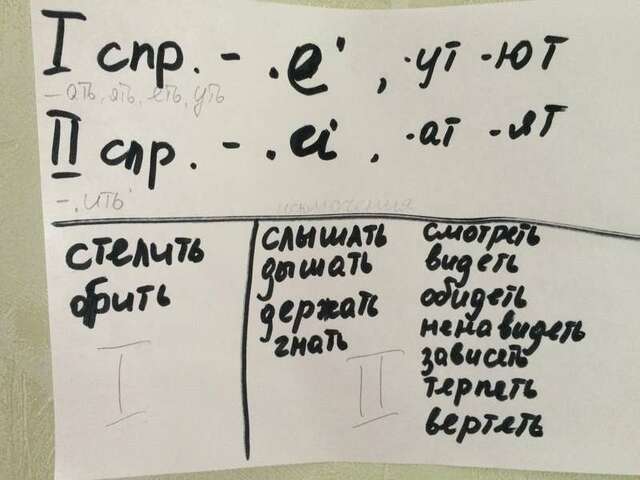 I спр. - . е , -ут -ют
-ать, ять, еть, уть
II спр. - . и , -ат -ят
-.ить
исключения
стелить
брить
I
слышать
дышать
держать
гнать
II
смотреть
видеть
обидеть
ненавидеть
зависеть
терпеть
вертеть